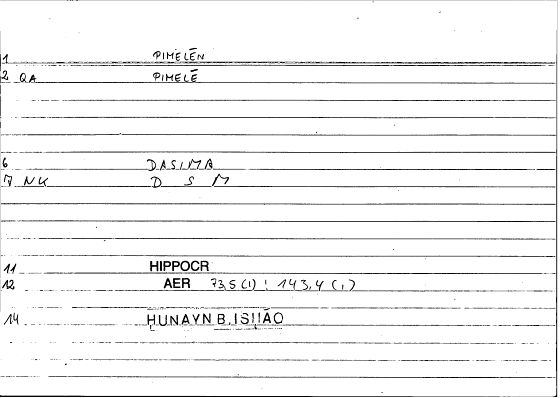 1 PIMELĒN
2 QA PIMELĒ
6 DASIMA
7 NK D S M
11 HIPPOCR
12 AER 73,5 (1) ; 143,4 (1)
14 ḤUNAYN B. ISḤĀQ